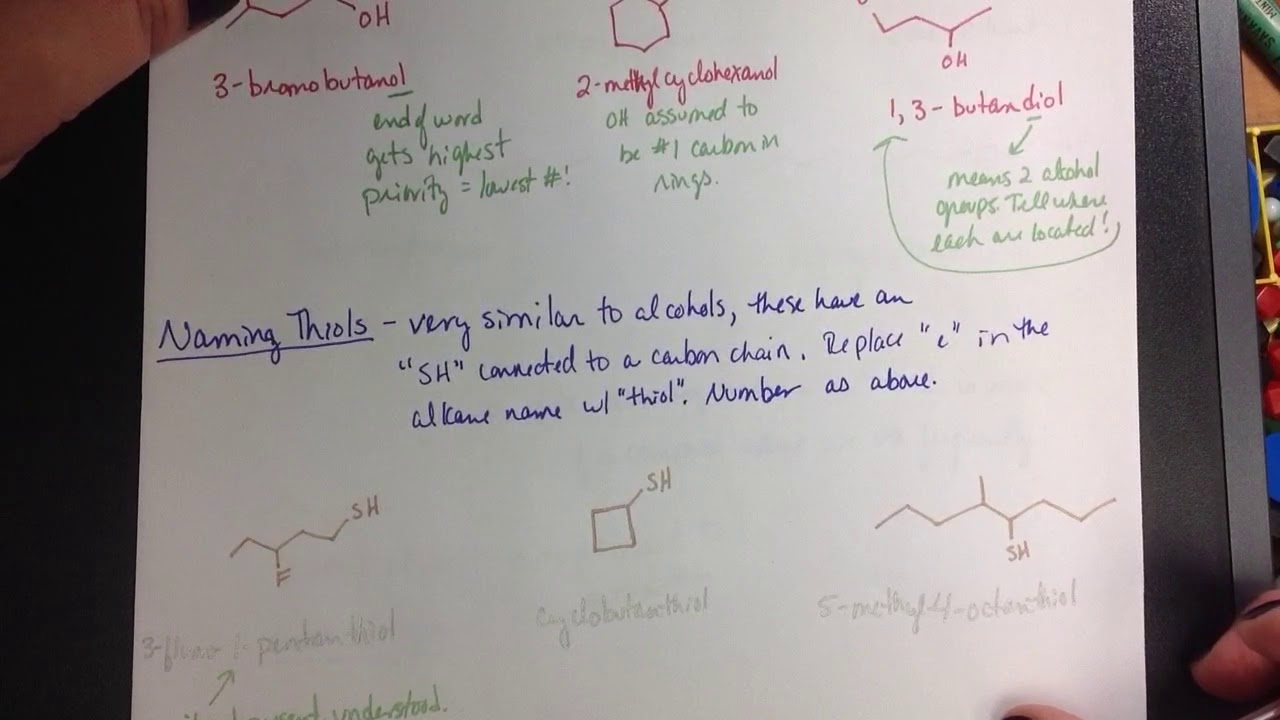 OH
3-bromobutanol
2-methylcyclohexanol
OH
1,3-butandiol
end of word
gets highest
priority = lowest #!
OH assumed to
be #1 carbon in
rings.
means 2 alcohol
groups. Tell where
each are located!
Naming Thiols - very similar to alcohols, these have an
"SH" connected to a carbon chain. Replace "e" in the
alkane name w/ "thiol". Number as above.
SH
F
SH
SH
3-fluoro 1-pentanthiol
cyclobutanthiol
5-methyl-4-octanthiol
understood.
SAVAN
MINT